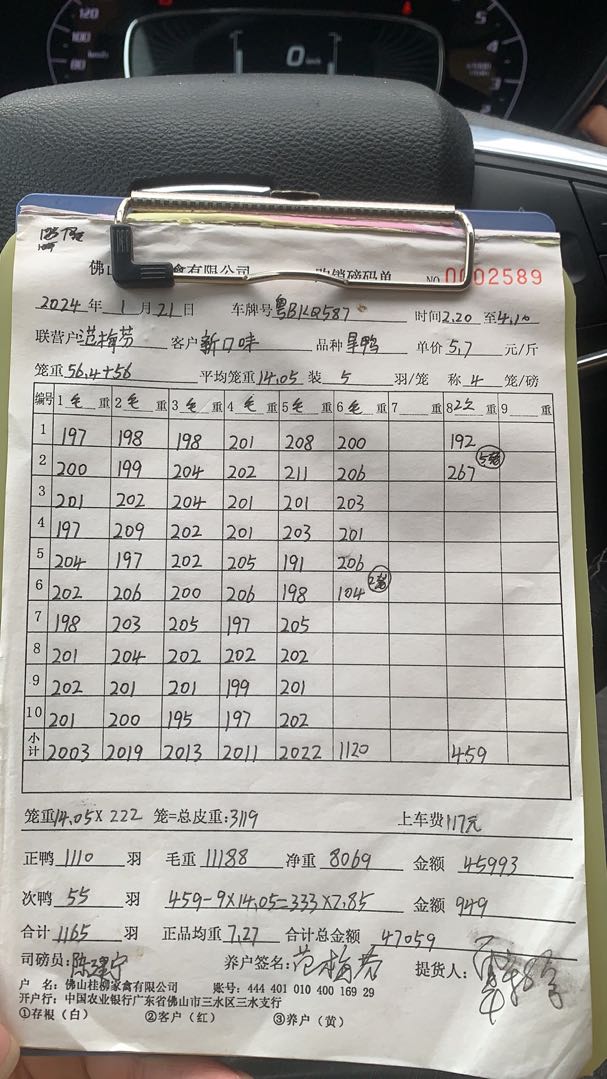 120
100
80
km/h
0 km/h
5
4
3
2
佛山 禽有限公司 购销磅码单 NO 0002589
2024 年 1 月 21 日 车牌号 粤BKQ587 时间 2.20 至 4.10
联营户 范梅芬 客户 新口味 品种 旱鸭 单价 5.7 元/斤
笼重 56.4+56 平均笼重 14.05 装 5 羽/笼 称 4 笼/磅
编号 1 毛 重 2 毛 重 3 毛 重 4 毛 重 5 毛 重 6 毛 重 7 重 8 次 重 9 重
1 197 198 198 201 208 200 192
2 200 199 204 202 211 206 267 5笼
3 201 202 204 201 201 203
4 197 209 202 201 203 201
5 204 197 202 205 191 206
6 202 206 200 206 198 104 2笼
7 198 203 205 197 205
8 201 204 202 202 202
9 202 201 201 199 201
10 201 200 195 197 202
小计 2003 2019 2013 2011 2022 1120 459
笼重 14.05×222 笼=总皮重: 3119 上车费 117元
正鸭 1110 羽 毛重 11188 净重 8069 金额 45993
次鸭 55 羽 459-9×14.05=333×2.85 金额 949
合计 1165 羽 正品均重 7.27 合计总金额 47059
司磅员: 陈建宁 养户签名: 范梅芬 提货人:
户 名: 佛山桂柳家禽有限公司 账号: 444 401 010 400 169 29
开户行: 中国农业银行广东省佛山市三水区三水支行
①存根(白) ②客户(红) ③养户(黄)